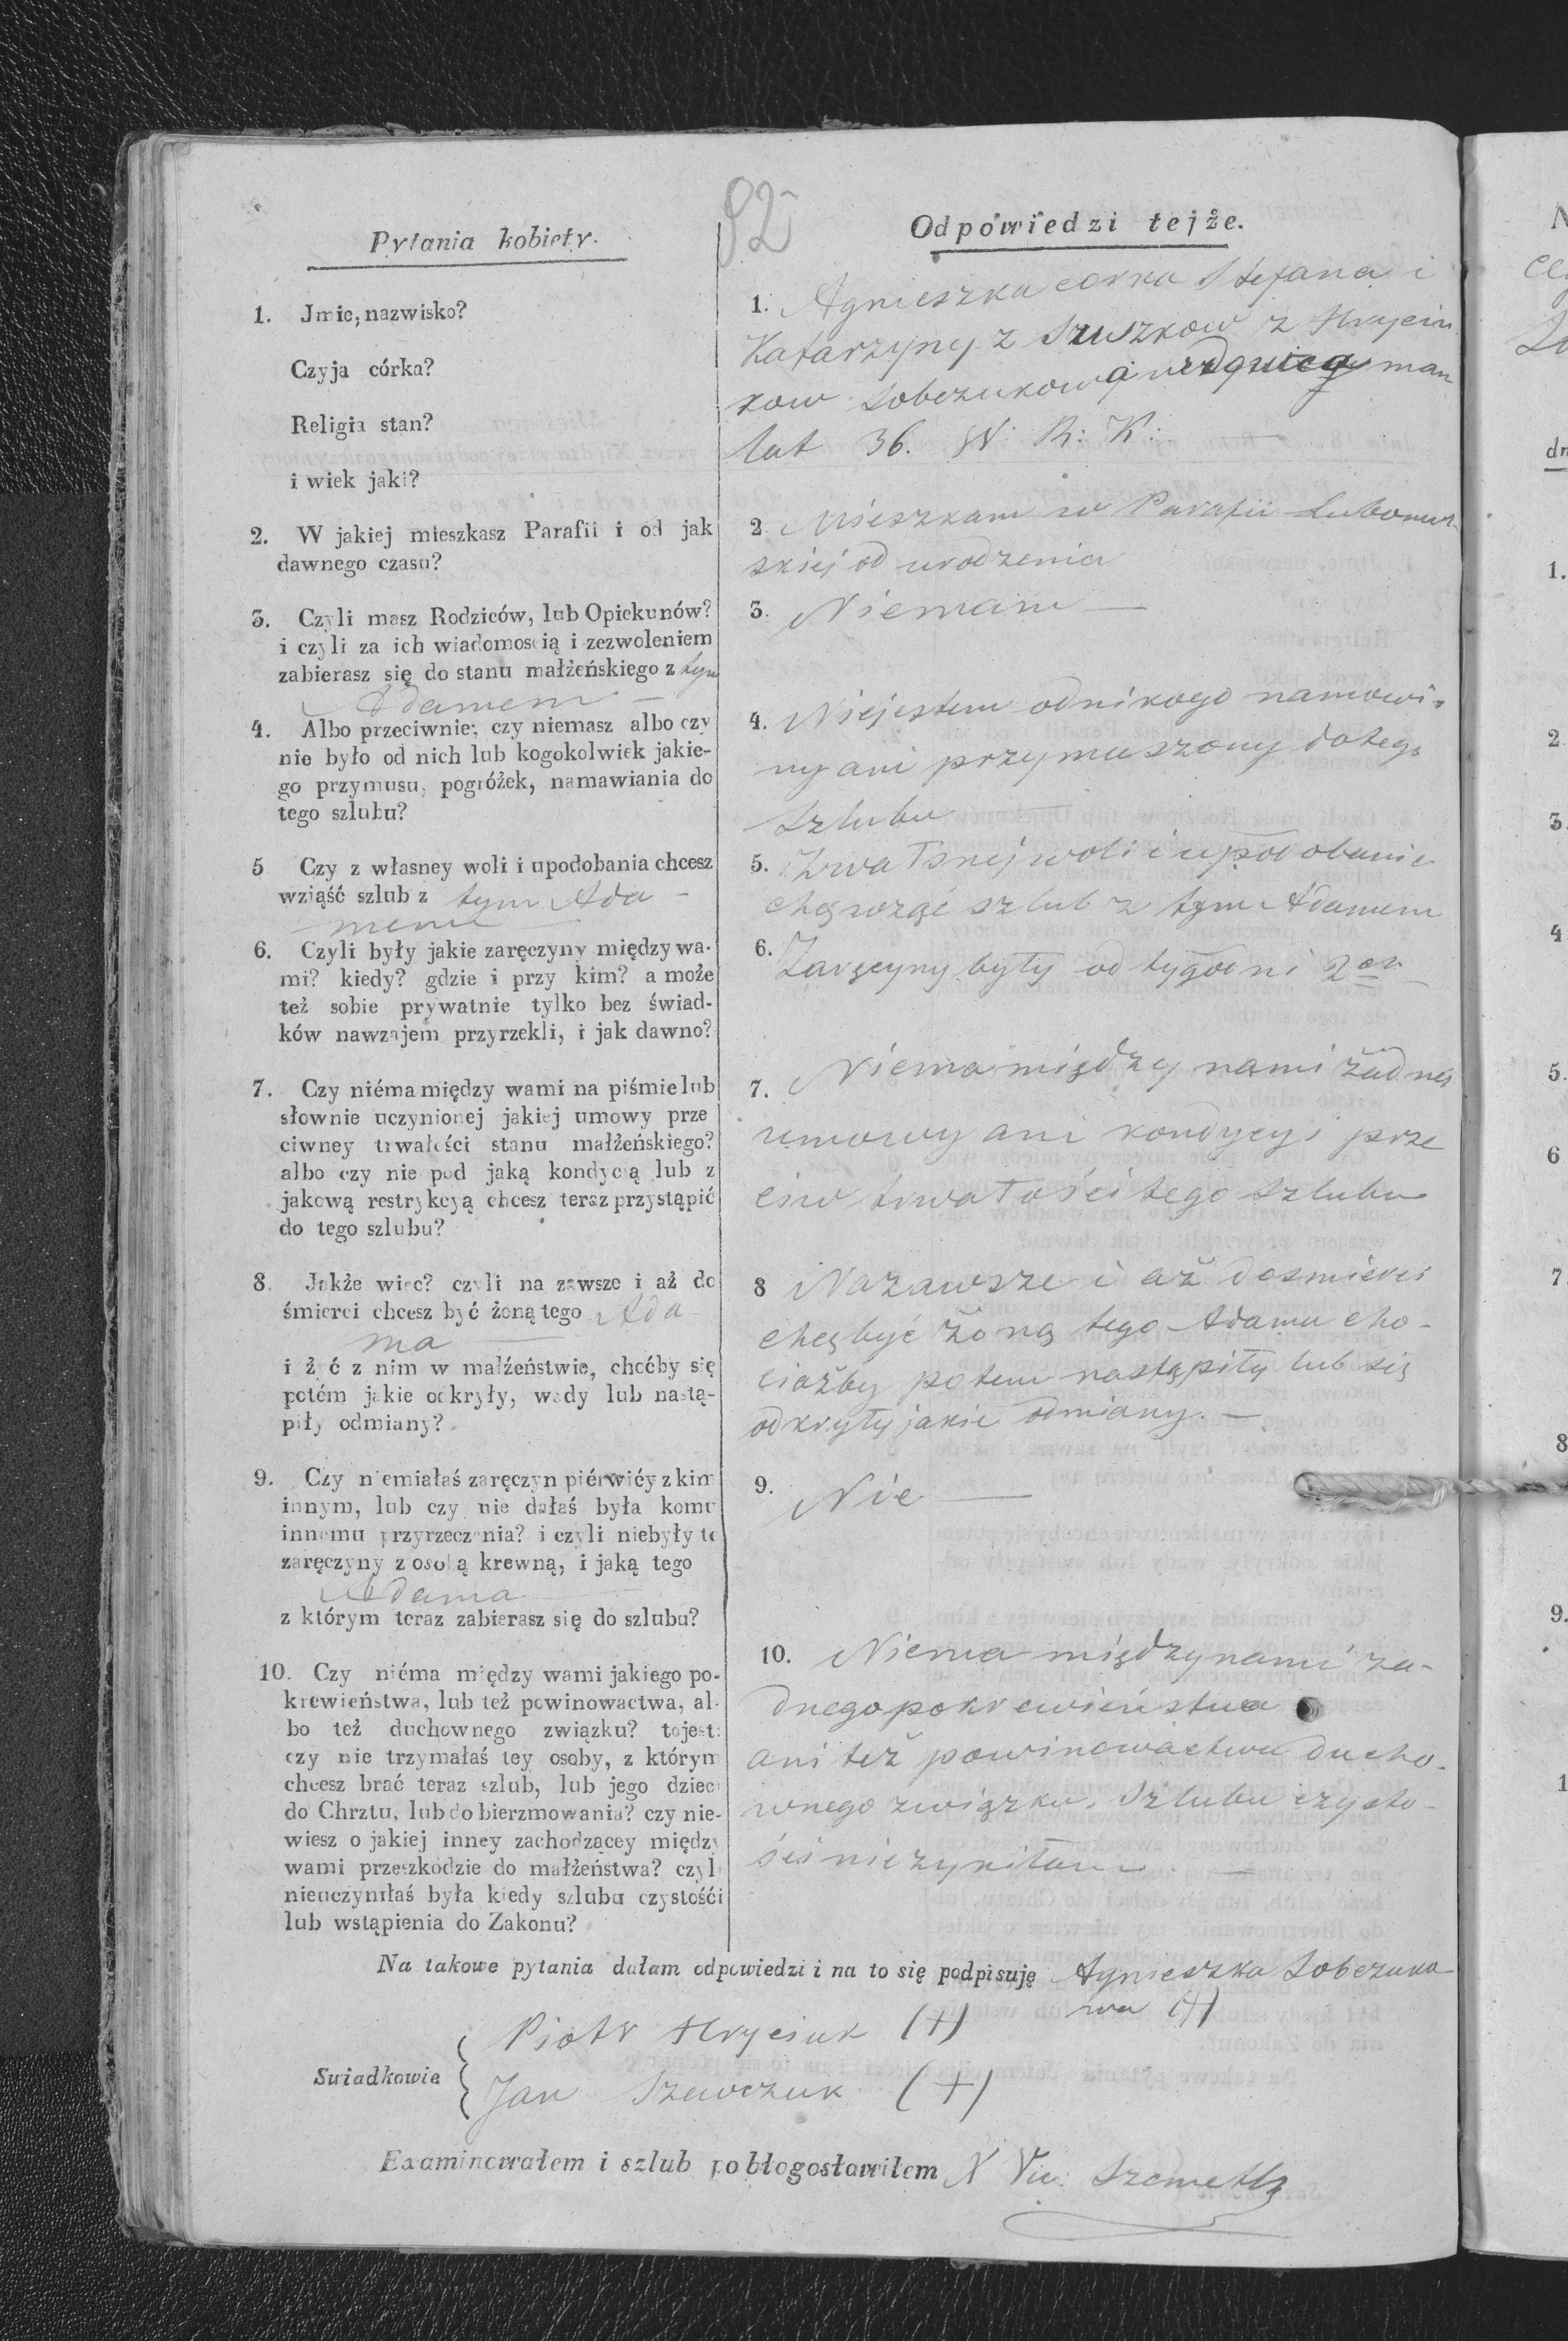 92
Pytania kobiety.
1. Jmie, nazwisko?
Czyja córka?
Religia stan?
i wiek jaki?
2. W jakiej mieszkasz Parafii i od jak
dawnego czasu?
3. Czyli masz Rodziców, lub Opiekunów?
i czyli za ich wiadomoscią i zezwoleniem
zabierasz się do stanu małżeńskiego z tym
Adamem
4. Albo przeciwnie: czy niemasz albo czy
nie było od nich lub kogokolwiek jakie-
go przymusu, pogróżek, namawiania do
tego szlubu?
5 Czy z własney woli i upodobania chcesz
wziąść szlub z tym Ada-
mem
6. Czyli były jakie zaręczyny między wa-
mi? kiedy? gdzie i przy kim? a może
też sobie prywatnie tylko bez świad-
ków nawzajem przyrzekli, i jak dawno?
7. Czy niéma między wami na piśmie lub
słownie uczynionej jakiej umowy prze
ciwney trwałości stanu małżeńskiego?
albo czy nie pod jaką kondycią lub z
jakową restrykcyą chcesz teraz przystąpić
do tego szlubu?
8. Jakże więc? czyli na zawsze i aż do
śmierci chcesz być żoną tego Ada-
ma
i żyć z nim w małżeństwie, choćby się
potém jakie odkryły, wady lub nastą-
piły odmiany?
9. Czy niemiałaś zaręczyn piérwićy z kim
innym, lub czy nie dałaś była komu
innemu przyrzeczenia? i czyli niebyły te
zaręczyny z osobą krewną, i jaką tego
Adama
z którym teraz zabierasz się do szlubu?
10. Czy niéma między wami jakiego po-
krewieństwa, lub też powinowactwa, al-
bo też duchownego związku? tojest:
czy nie trzymałaś tey osoby, z którym
chcesz brać teraz szlub, lub jego dzieci
do Chrztu, lub do bierzmowania? czy nie-
wiesz o jakiej inney zachodzącey między
wami przeszkodzie do małżeństwa? czyli
nieuczyniłaś była kiedy szlubu czystośći
lub wstąpienia do Zakonu?
Odpowiedzi tejże.
1. Agnieszka corka Stefana i
Katarzyny z Szuszkow z Hrycin
kow Sobczukowa
lat 36. W: R: K:
2. Mieszkam w Parafii
skiej od urodzenia
3. Niemam
4. Niejestem odnikogo namowi-
ny ani przymuszony dotego
Szlubu
5. Zwałsnej woli i upodobania
chcę wząć szlub z tym Adamem
6. Zaręcyny były od tygodni 2ch
7. Niema między nami żadnej
umowy ani kondycyi prze
ciw trwałości tego Szlubu
8 Nazawsze i aż dosmierci
chcę być żoną tego Adama cho-
ciażby potem nastąpiły lub się
odkryły jakie odmiany.
9. Nie
10. Niema międzynami ża-
dnego pokrewieństwa
ani też powinowactwa ducho-
wnego związku. Szlubu czysto-
ści
Na takowe pytania dałam odpowiedzi i na to się podpisuję Agnieszka Sobczuko
wa (+)
Swiadkowie
Piotr Hryciuk (+)
Jan Szewczuk (+)
Examinowałem i szlub pobłogosławiłem X Vic:
N
dn
1.
2
3.
4
5.
6
7
8
9.
1